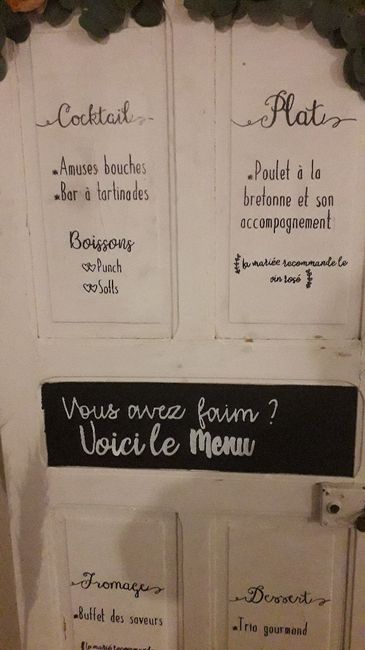 Cocktail
*Amuses bouches
*Bar à tartinades
Boissons
Punch
Softs
Plat
*Poulet à la
bretonne et son
accompagnement
la mariée recommande le
vin rosé
Vous avez faim ?
Voici le Menu
Fromages
*Buffet des saveurs
la mariée recommande
Desserts
*Trio gourmand